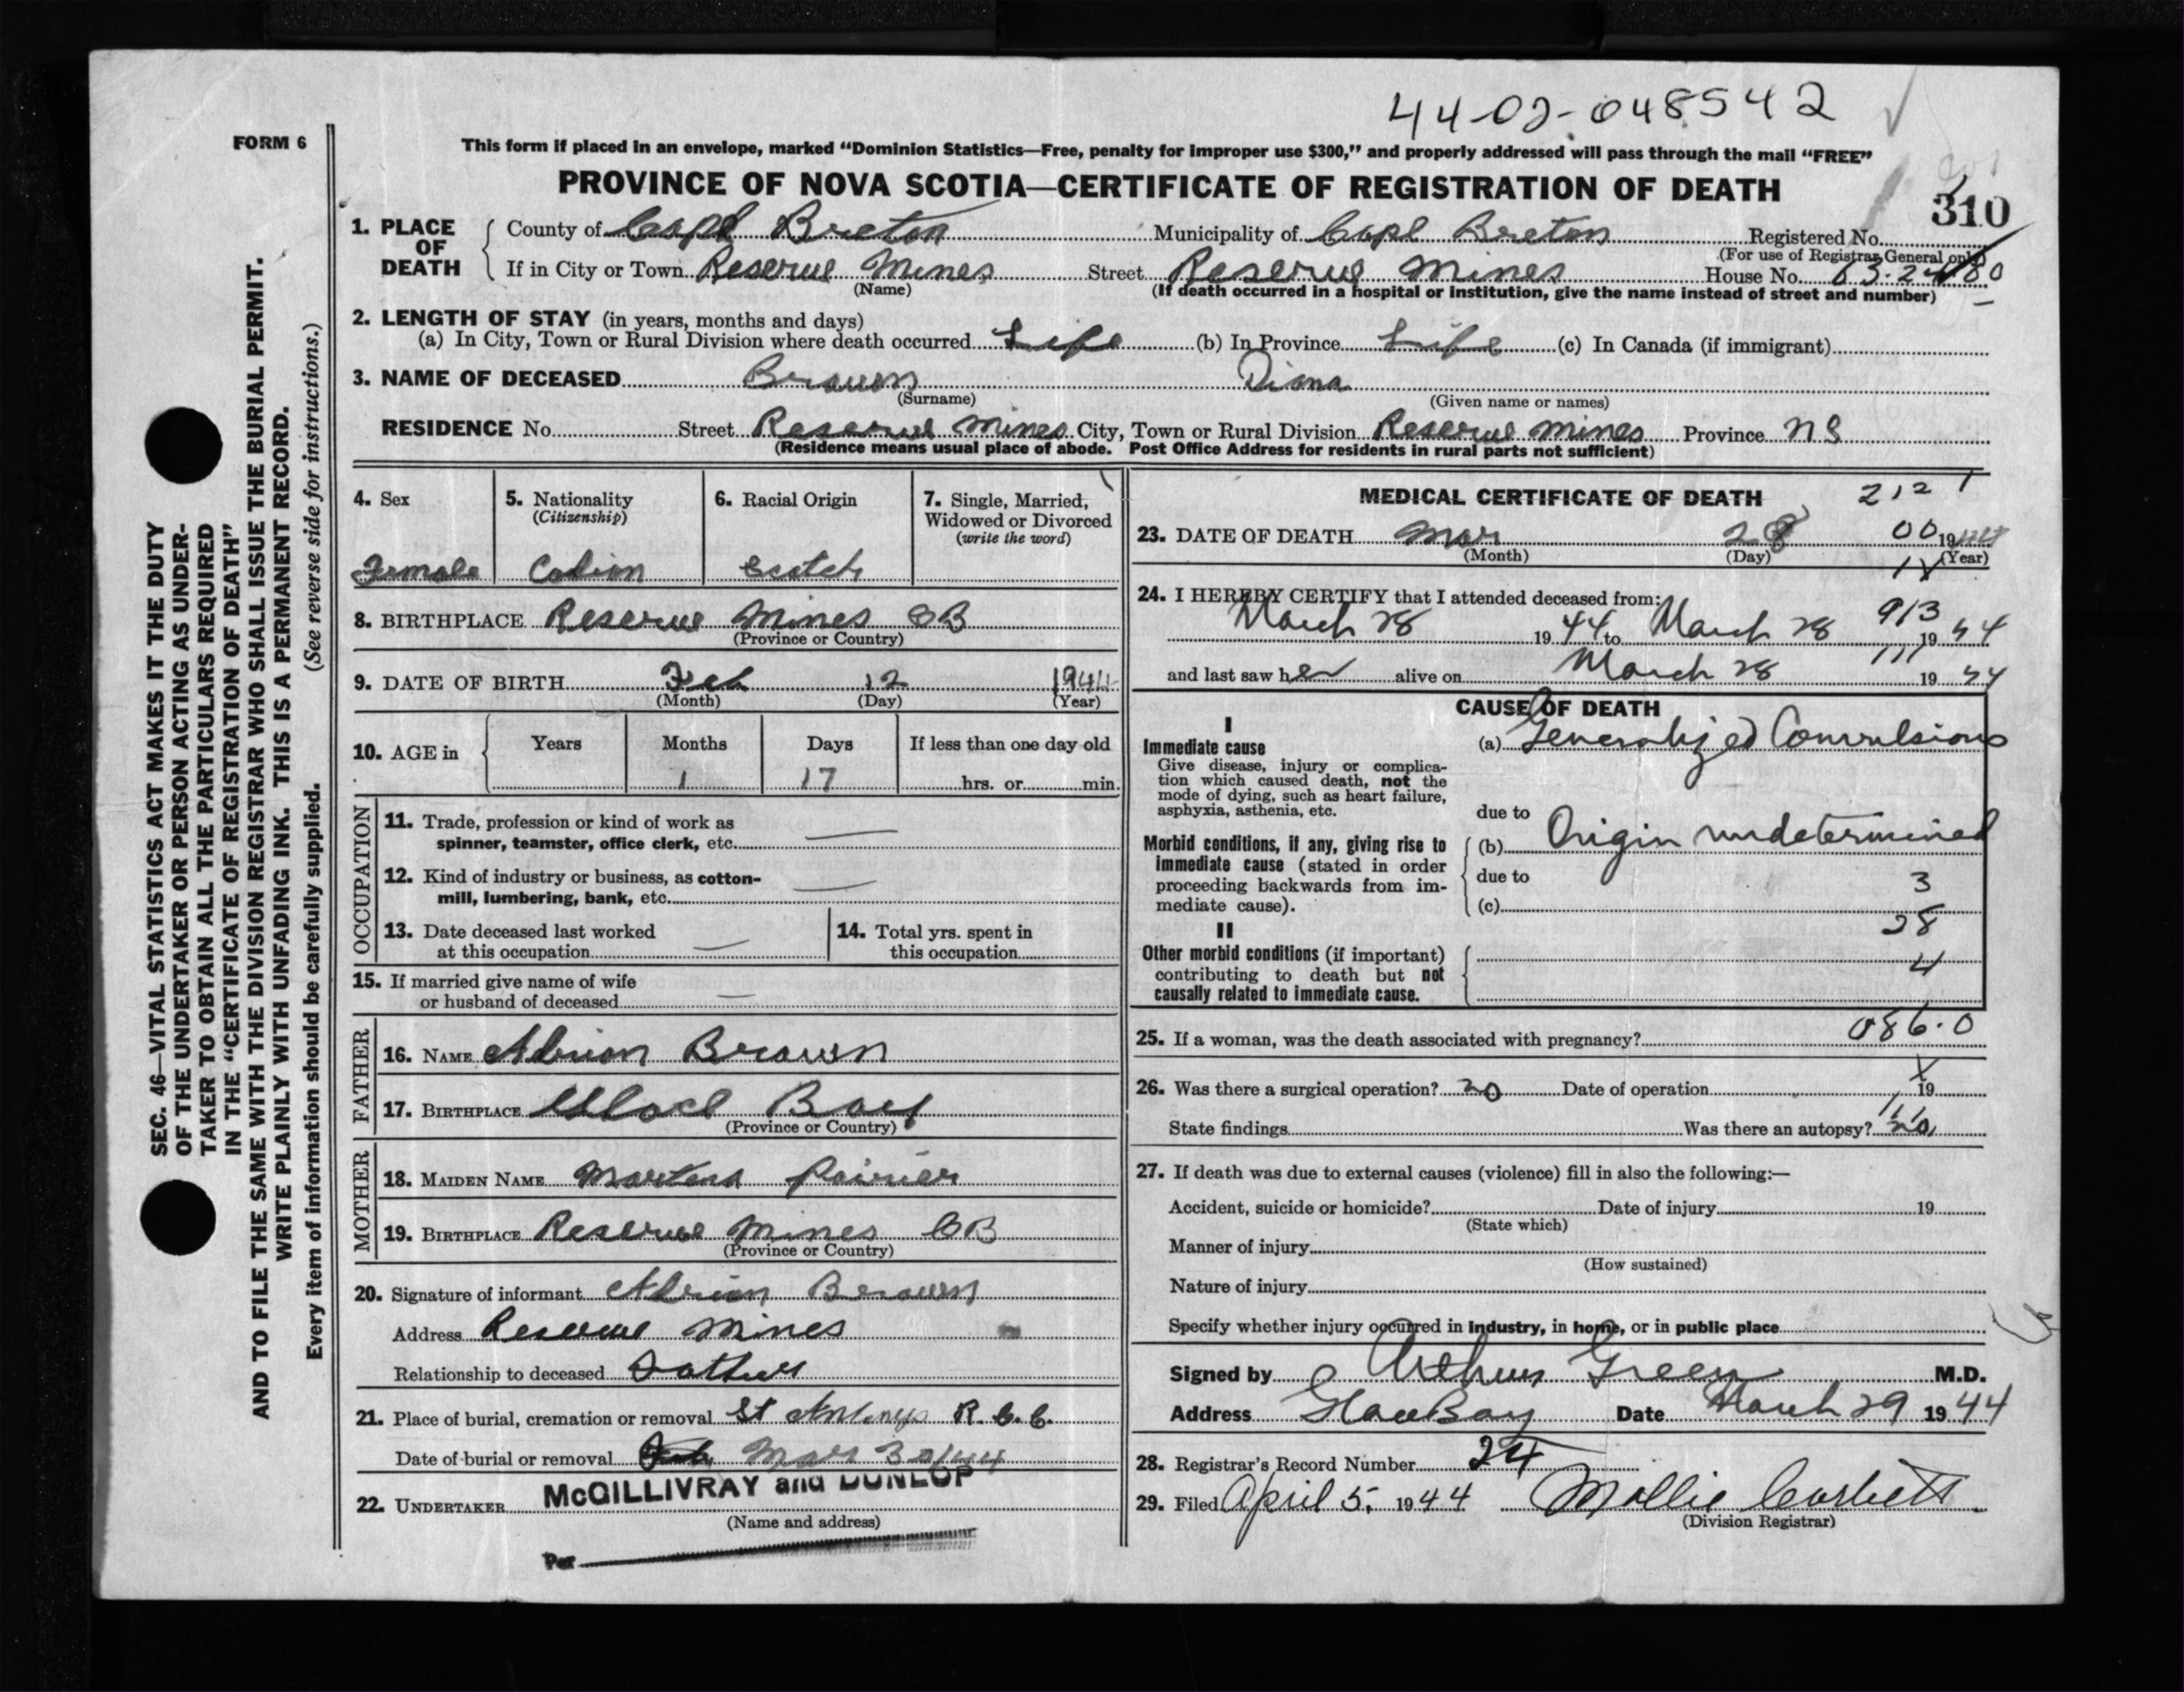 44-02-048542
FORM 6
This form if placed in an envelope, marked “Dominion Statistics—Free, penalty for improper use $300,” and properly addressed will pass through the mail “FREE”
PROVINCE OF NOVA SCOTIA—CERTIFICATE OF REGISTRATION OF DEATH
310
1. PLACE OF DEATH
County of Cape Breton Municipality of Cape Breton Registered No.
(For use of Registrar General only)
If in City or Town Reserve Mines Street Reserve Mines House No.
(Name) (If death occurred in a hospital or institution, give the name instead of street and number)
2. LENGTH OF STAY (in years, months and days)
(a) In City, Town or Rural Division where death occurred Life (b) In Province Life (c) In Canada (if immigrant)
3. NAME OF DECEASED Brown Diana
(Surname) (Given name or names)
RESIDENCE No. Street Reserve Mines City, Town or Rural Division Reserve Mines Province NS
(Residence means usual place of abode. Post Office Address for residents in rural parts not sufficient)
4. Sex
Female
5. Nationality
(Citizenship)
Cadian
6. Racial Origin
Scotch
7. Single, Married,
Widowed or Divorced
(write the word)
8. BIRTHPLACE Reserve Mines CB
(Province or Country)
9. DATE OF BIRTH Feb 12 1944
(Month) (Day) (Year)
10. AGE in Years Months Days If less than one day old
1 17 hrs. or min.
OCCUPATION
11. Trade, profession or kind of work as
spinner, teamster, office clerk, etc. —
12. Kind of industry or business, as cotton-
mill, lumbering, bank, etc. —
13. Date deceased last worked
at this occupation —
14. Total yrs. spent in
this occupation
15. If married give name of wife
or husband of deceased —
FATHER
16. NAME Adrian Brown
17. BIRTHPLACE Glace Bay
(Province or Country)
MOTHER
18. MAIDEN NAME Martena Poirier
19. BIRTHPLACE Reserve Mines CB
(Province or Country)
20. Signature of informant Adrian Brown
Address Reserve Mines
Relationship to deceased Father
21. Place of burial, cremation or removal St Antonys R.C.C.
Date of burial or removal Mar 30/44
22. UNDERTAKER McGILLIVRAY and DUNLOP
(Name and address)
Per
MEDICAL CERTIFICATE OF DEATH 212 1
23. DATE OF DEATH Mar 28 00 1944
(Month) (Day) (Year)
24. I HEREBY CERTIFY that I attended deceased from:
March 28 1944 to March 28 1944
913
and last saw her alive on March 28 1944
111
CAUSE OF DEATH
I
Immediate cause
Give disease, injury or complica-
tion which caused death, not the
mode of dying, such as heart failure,
asphyxia, asthenia, etc.
(a) Generalized Convulsions
due to
Morbid conditions, if any, giving rise to
immediate cause (stated in order
proceeding backwards from im-
mediate cause).
(b) Origin undetermined
due to
(c)
3
28
4
II
Other morbid conditions (if important)
contributing to death but not
causally related to immediate cause.
25. If a woman, was the death associated with pregnancy? 086.0
26. Was there a surgical operation? no Date of operation 19
X
State findings Was there an autopsy? no
27. If death was due to external causes (violence) fill in also the following:—
Accident, suicide or homicide? Date of injury 19
(State which)
Manner of injury
(How sustained)
Nature of injury
Specify whether injury occurred in industry, in home, or in public place
Signed by Arthur Green M.D.
Address Glace Bay Date March 29 1944
28. Registrar's Record Number 24
29. Filed April 5, 1944 Mollie Corbett
(Division Registrar)
SEC. 46—VITAL STATISTICS ACT MAKES IT THE DUTY
OF THE UNDERTAKER OR PERSON ACTING AS UNDER-
TAKER TO OBTAIN ALL THE PARTICULARS REQUIRED
IN THE “CERTIFICATE OF REGISTRATION OF DEATH”
AND TO FILE THE SAME WITH THE DIVISION REGISTRAR WHO SHALL ISSUE THE BURIAL PERMIT.
WRITE PLAINLY WITH UNFADING INK. THIS IS A PERMANENT RECORD.
Every item of information should be carefully supplied. (See reverse side for instructions.)